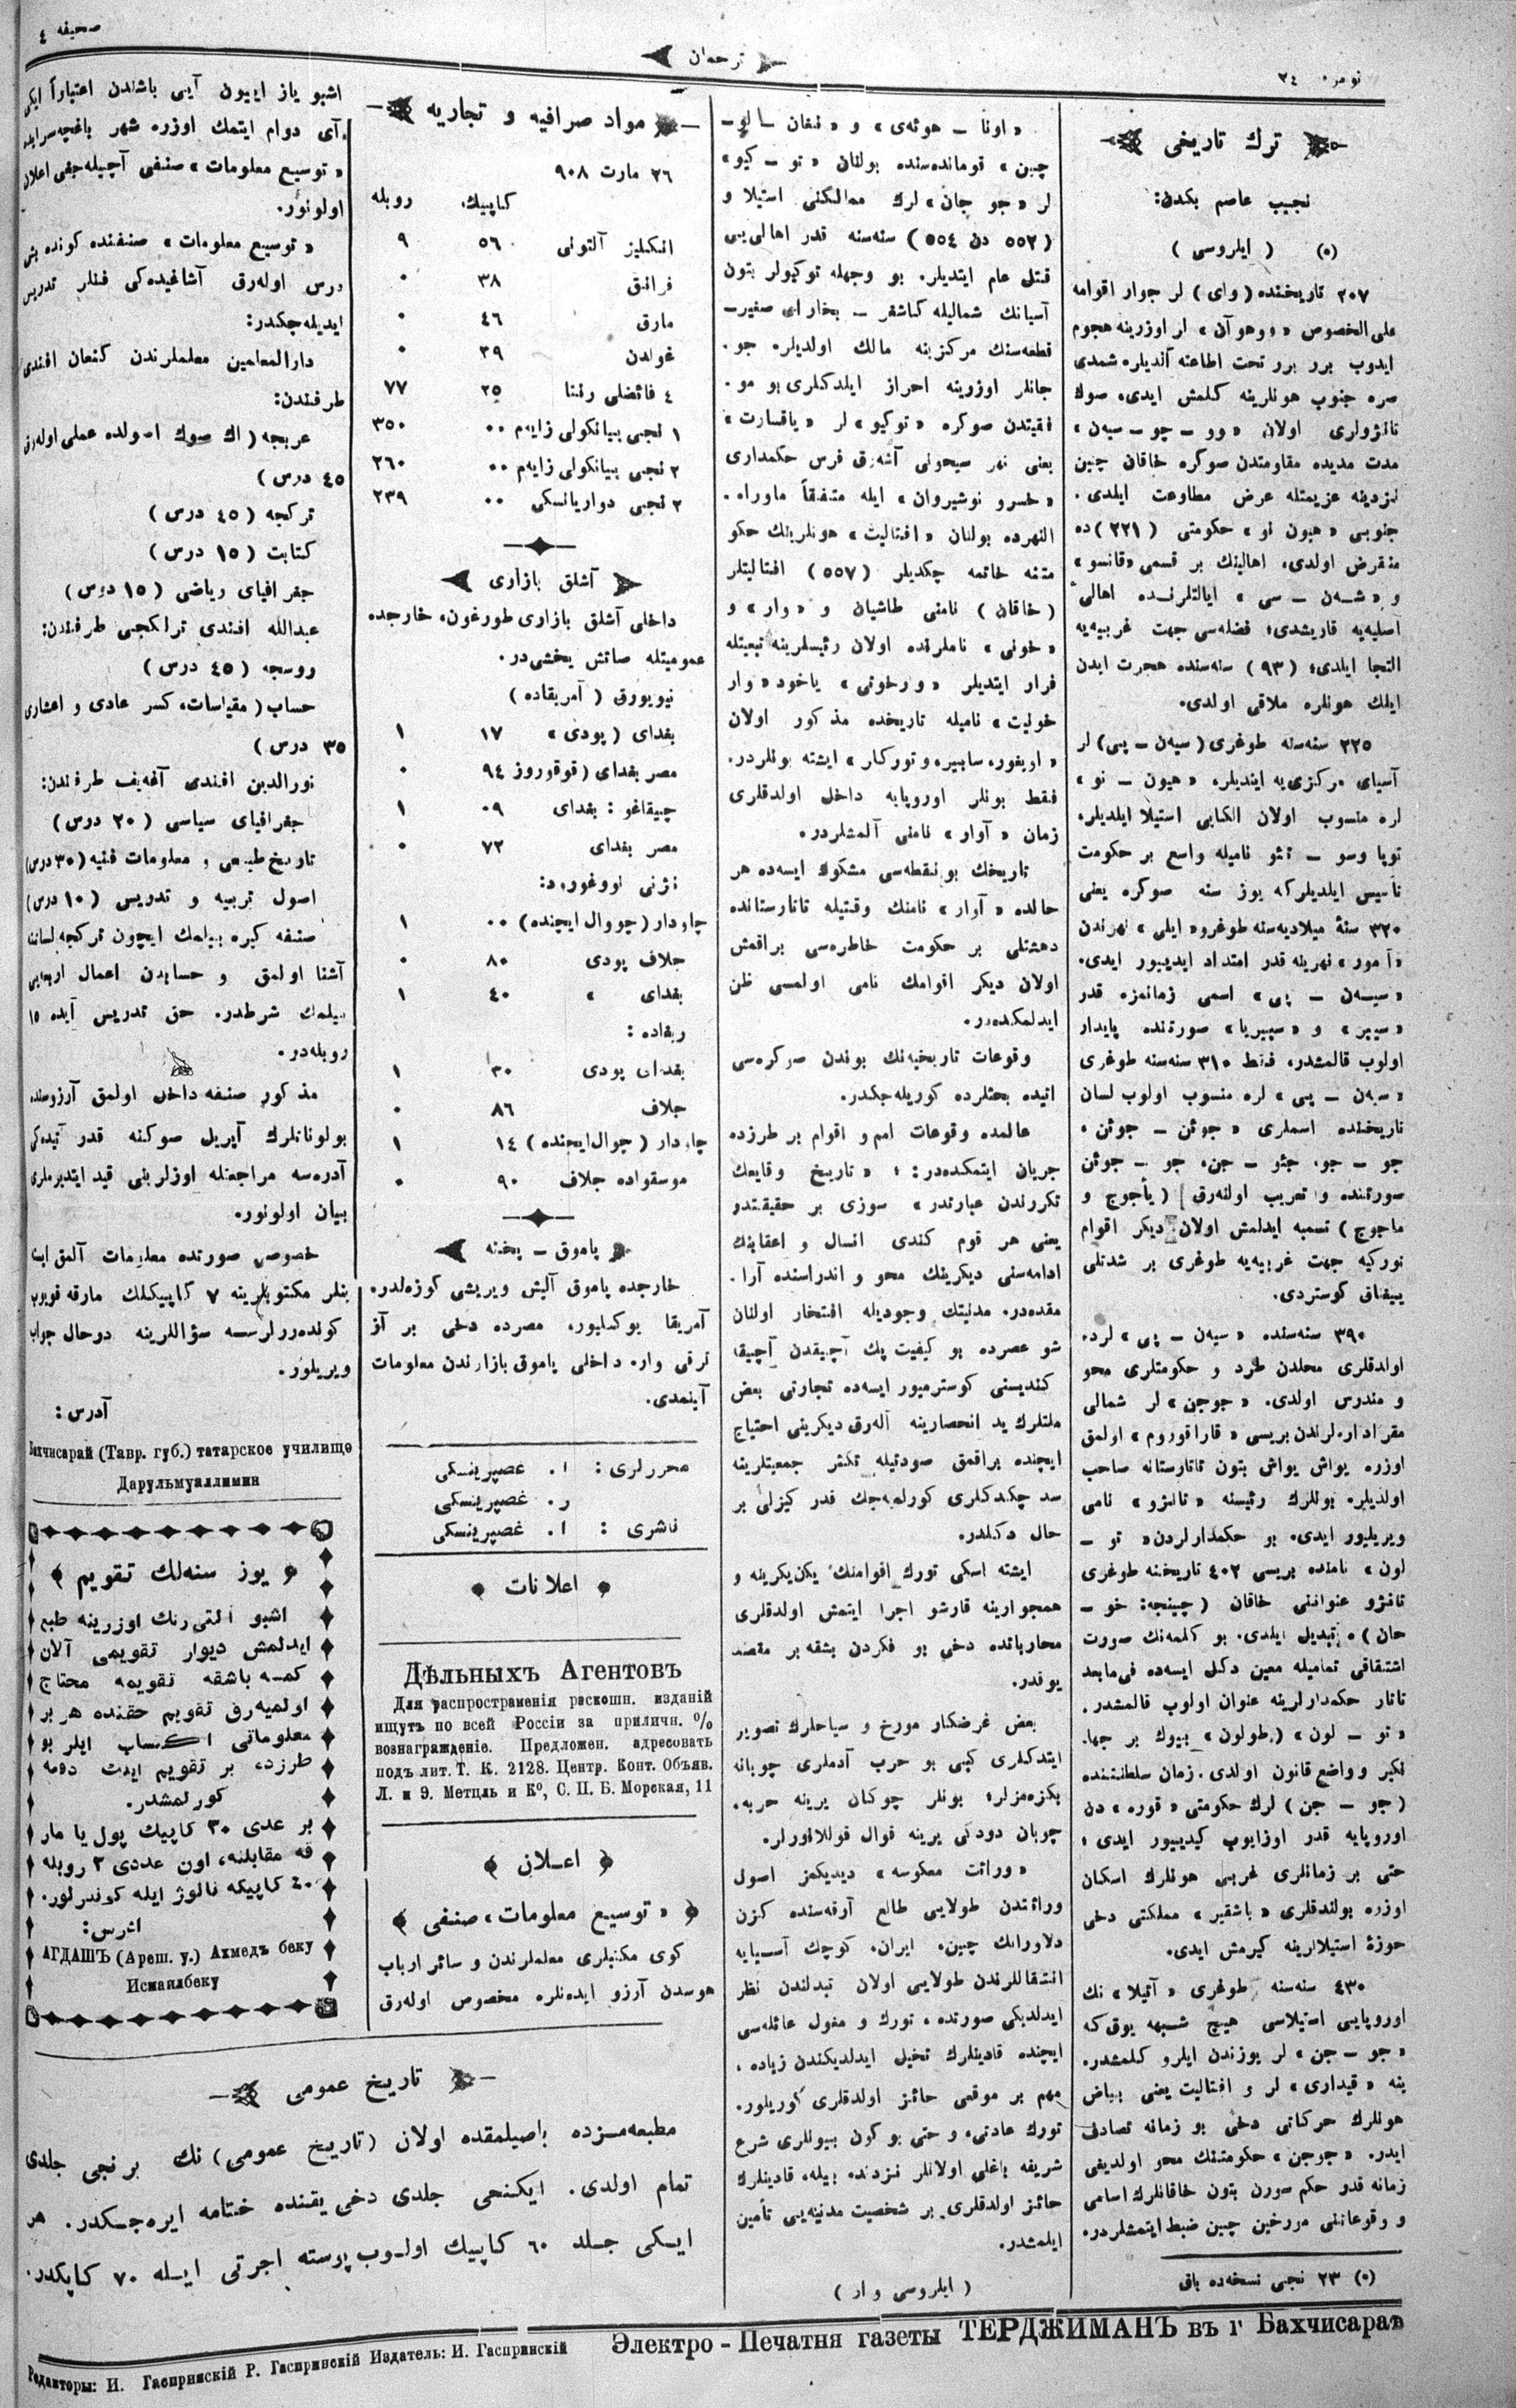 صحیفه ٤
ترجمان
نومره ٢٤
ترك تاریخی
نجیب عاصم بكدن:
(٥) ( ایلروسی )
٢٠٧ تاریخنده (وای) لر جوار اقوامه
علی الخصوص «ووهوآن» لر اوزرینه هجوم
ایدوب برر برر تحت اطاعته آلدیلر. شمدی
صره جنوب هونلرینه كلمش ایدی. صوك
تانژولری اولان «وو – چو – سیەن»
مدت مدیده مقاومتدن صوكره خاقان چین
نزدینه عزیمتله عرض مطاوعت ایلدی.
جنوبی «هیون نو» حكومتی (٢٢١) ده
منقرض اولدی. اهالینك بر قسمی «قانسو»
و «شەن – سی» ایالتلرنده اهالئ
اصلیه‌یه قاریشدی؛ فضله‌سی جهت غربیه‌یه
التجا ایلدی؛ (٩٣) سنه‌سنده هجرت ایدن
ایلك هونلره ملاقی اولدی.
٢٢٥ سنه‌سنه طوغری (سیەن – پی) لر
آسیای مركزی‌یه ایندیلر. «هیون – نو»
لره منسوب اولان الكایی استیلا ایلدیلر.
توپا وسو – تئو نامیله واسع بر حكومت
تأسیس ایلدیلركه یوز سنه صوكره یعنی
٣٢٠ سنۀ میلادیه‌سنه طوغرو «ایلی» نهرندن
«آمور» نهرینه قدر امتداد ایدییور ایدی.
«سیەن – پی» اسمی زمانمزه قدر
«سیبر» و «سیبریا» صورتنده پایدار
اولوب قالمشدر. فقط ٣١٠ سنه‌سنه طوغری
«سیەن – پی» لره منسوب اولوب لسان
تاریخنده اسملری «جوئن – جوئن،
جو – جو، جئو – جن، جو – جوئن
صورتنده و تعریب اولنه‌رق (یأجوج و
مأجوج) تسمیه ایدلمش اولان دیكر اقوام
توركیه جهت غربیه‌یه طوغری بر شدتلی
٣٩٠ سنه‌سنده «سیەن – پی» لرد.
اولدقلری محلدن طرد و حكومتلری محو
و مندرس اولدی. «جوجن» لر شمالی
مقر اداره‌لرندن بریسی «قاراقوروم» اولمق
اوزره یواش یواش بتون تاتارستانه صاحب
اولدیلر. بونلرك رئیسنه «تانژو» نامی
ویریلیور ایدی. بو حكمدارلردن «تو –
لون» نامنده بریسی ٤٠٢ تاریخنه طوغری
تانژو عنواننی خاقان (چینجه: خو –
حان) ه تبدیل ایلدی. بو كلمه‌نك صورت
اشتقاقی تمامیله معین دكل ایسه‌ده فی‌مابعد
تاتار حكمدارلرینه عنوان اولوب قالمشدر.
«تو – لون» (طولون) بیوك بر جها.
نكیر و واضع قانون اولدی. زمان سلطنتنده
(جو – جن) لرك حكومتی «قوره» دن
اوروپایه قدر اوزایوب كیدییور ایدی؛
حتی بر زمانلری غربی هونلرك اسكان
اوزره بولندقلری «باشقیر» مملكتی دخی
حوزۀ استیلالرینه كیرمش ایدی.
٤٣٠ سنه‌سنه طوغری «آتیلا» نك
اوروپایی استیلاسی هیچ شبهه یوق كه
«جو – جن» لر یوزندن ایلرو كلمشدر.
ینه «قیداری» لر و افتالیت یعنی بیاض
هونلرك حركاتی دخی بو زمانه تصادف
ایدر. «جوجن» حكومتنك محو اولدیغی
زمانه قدر حكم سورن بتون خاقانلرك اسامی
و وقوعاتنی مورخین چین ضبط ایتمشلردر.
(٥) ٢٣ نجی نسخه‌ده باق
«اونا – هوئه‌ی» و «نغان – لو –
چین» قومانده‌سنده بولنان «تو – كیو»
لر «جو جان» لرك ممالكنی استیلا و
(٥٥٢ دن ٥٥٤) سنه‌سنه قدر اهالی‌یی
قتل عام ایتدیلر. بو وجهله توكیولر بتون
آسیانك شمالیله كاشغر – بخارای صغیر –
قطعه‌سنك مركزینه مالك اولدیلر. جو.
جانلر اوزرینه احراز ایلدكلری بو مو.
فقیتدن صوكره «توكیو» لر «یاقسارت»
یعنی نهر سیحونی آشه‌رق فرس حكمداری
«خسرو نوشیروان» ایله متفقاً ماوراء.
النهرده بولنان «افتالیت» هونلرینك حكو
متنه خاتمه چكدیلر (٥٥٧) افتالیتلر
(خاقان) نامنی طاشیان و «وار» و
«خونی» ناملرنده اولان رئیسلرینه تبعیتله
فرار ایتدیلر «ورخونی» یاخود «وار
خونیت» نامیله تاریخده مذكور اولان
«اویغور، سابیر، و توركار» ایشته بونلردر.
فقط بونلر اوروپایه داخل اولدقلری
زمان «آوار» نامنی آلمشلردر.
تاریخك بو نقطه‌سی مشكوك ایسه‌ده هر
حالده «آوار» نامنك وقتیله تاتارستانده
دهشتلی بر حكومت خاطره‌سی براقمش
اولان دیكر اقوامك نامی اولمسی ظن
ایدلمكده‌در.
وقوعات تاریخیه‌نك بوندن صوكره‌سی
آتیده بحثلرده كوریله‌جكدر.
عالمده وقوعات امم و اقوام بر طرزده
جریان ایتمكده‌در: «تاریخ وقایعك
تكررندن عبارتدر» سوزی بر حقیقتدر
یعنی هر قوم كندی انسال و اعقابنك
ادامه‌سنی دیكرینك محو و اندراسنده آرا.
مقده‌در. مدنیتك وجودیله افتخار اولنان
شو عصرده بو كیفیت پك آچیقدن آچیغه
كندیسنی كوسترمیور ایسه‌ده تجارتی بعض
ملتلرك ید انحصارینه آله‌رق دیكرینی احتیاج
ایچنده براقمق صورتیله تكثر جمعیتلرینه
سد چكدكلری كورلمه‌یه‌جك قدر كیزلی بر
حال دكلدر.
ایشته اسكی تورك اقوامنك یكن‌یكرینه و
همجوارینه قارشو اجرا ایتمش اولدقلری
محارباتده دخی بو فكردن بشقه بر مقصد
یوقدر.
بعض غرضكار مورخ و سیاحلرك تصویر
ایتدكلری كبی بو حرب آدملری چوبانه
بكزه‌مزلر؛ بونلر چوكان یرینه حربه،
چوبان دودكی یرینه قوال قوللانورلر.
«وراثت معكوسه» دیدیكمز اصول
وراثتدن طولایی طالع آرقه‌سنده كزن
دلاورانك چین، ایران، كوچك آسیایه
انتقاللرندن طولایی اولان تبدلندن نظر
ایدلدیكی صورتده، تورك و مغول عائله‌سی
ایچنده قادینلرك تخیل ایدلدیكندن زیاده،
مهم بر موقعی حائز اولدقلری كوریلور.
تورك عادتی، و حتی بو كون بیوللری شرع
شریفه باغلی اولانلر نزدنده بیله، قادینلرك
حائز اولدقلری بر شخصیت مدنیه‌یی تأمین
ایلمشدر.
( ایلروسی وار )
مواد صرافیه و تجاریه
٢٦ مارت ٩٠٨
كاپیك. روبله
انكلیز آلتونی ٥٦ ٩
فرانق ٣٨ ٠
مارق ٤٦ ٠
غولدن ٣٩ ٠
٤ فائضلی رنتا ٢٥ ٧٧
١ نجی بیانكولی زایەم ٠٠ ٣٥٠
٢ نجی بیانكولی زایەم ٠٠ ٢٦٠
٣ نجی دواریانسكی ٠٠ ٢٣٩
آشلق بازاری
داخلی آشلق بازاری طورغون، خارجده
عمومیتله صاتش یخشی‌در.
نیویورق (آمریقاده)
بغدای (پودی) ١٧ ١
مصر بغدای (قوقوروز ٩٤ ٠
چیقاغو: بغدای ٠٩ ١
مصر بغدای ٧٢ ٠
نژنی نووغورود:
چاودار (چووال ایچنده) ٠٠ ١
جلاف پودی ٨٠ ٠
بغدای » ٤٠ ١
ریغاده:
بغدای پودی ٣٠ ١
جلاف ٨٦ ٠
چاودار (چوال ایچنده) ١٤ ١
موسقواده جلاف ٩٠ ٠
پاموق – پخته
خارجده پاموق آلیش ویریشی كوزه‌لدر.
آمریقا یوكسلیور، مصرده دخی بر آز
ترقی وار. داخلی پاموق بازارندن معلومات
آلینمدی.
محررلری: ا. غصپرینسكی
ر. غصپرینسكی
ناشری: ا. غصپرینسكی
اعلانات
Дѣльныхъ Агентовъ
Для распространенія раскошн. изданій
ищутъ по всей Россіи за приличн. %
вознагражденіе. Предложен. адресовать
подъ лит. Т. К. 2128. Центр. Конт. Объяв.
Л. и Э. Метцль и Ко, С. П. Б. Морская, 11
اعلان
«توسیع معلومات» صنفی
كوی مكتبلری معلملرندن و سائر ارباب
هوسدن آرزو ایده‌نلره مخصوص اوله‌رق
اشبو یاز اییون آیی باشندن اعتباراً ایكی
آی دوام ایتمك اوزره شهر باغچه‌سرایده
«توسیع معلومات» صنفی آچیله‌جغی اعلان
اولونور.
«توسیع معلومات» صنفنده كونده بش
درس اوله‌رق آشاغیده‌كی فنلر تدریس
ایدیله‌جكدر:
دارالمعلمین معلملرندن كنعان افندی
طرفندن:
عربجه (اك صوك اصولده عملی اوله‌رق
٤٥ درس)
تركجه (٤٥ درس)
كتابت (١٥ درس)
جغرافیای ریاضی (١٥ درس)
عبدالله افندی ترلكجی طرفندن:
روسجه (٤٥ درس)
حساب (مقیاسات، كسر عادی و اعشاری
٣٥ درس)
نورالدین افندی آغەیف طرفندن:
جغرافیای سیاسی (٢٠ درس)
تاریخ طبیعی و معلومات فنیه (٣٠ درس)
اصول تربیه و تدریس (١٠ درس)
صنفه كیره بیلمك ایچون تركجه لساننه
آشنا اولمق و حسابدن اعمال اربعه‌یی
بیلمك شرطدر. حق تدریس آیده ١٥
روبله‌در.
مذكور صنفه داخل اولمق آرزوسنده
بولونانلرك آپریل صوكنه قدر آتیده‌كی
آدره‌سه مراجعتله اوزلرینی قید ایتدیرملری
بیان اولونور.
خصوصی صورتده معلومات آلمق ایسته
ینلر مكتوبلرینه ٧ كاپیكلك مارقه قویوب
كوندەررلرسه سؤاللرینه درحال جواب
ویریلور.
آدرس:
Бахчисарай (Тавр. губ.) татарское училище
Дарульмуаллимин
یوز سنه‌لك تقویم
اشبو آلتی رنك اوزرینه طبع
ایدلمش دیوار تقویمی آلان
كمسه باشقه تقویمه محتاج
اولمیه‌رق تقویم حقنده هر بر
معلوماتی اكتساب ایلر بو
طرزده بر تقویم ایلك دفعه
كورلمشدر.
بر عددی ٣٠ كاپیك پول یا مار
قه مقابلنه، اون عددی ٢ روبله
٤٠ كاپیكه نالوژ ایله كوندرلور.
آدرس:
АГДАШЪ (Ареш. у.) Ахмедъ беку
Исмаилбеку
تاریخ عمومی
مطبعه‌مزده باصیلمقده اولان (تاریخ عمومی) نك برنجی جلدی
تمام اولدی. ایكنجی جلدی دخی یقنده ختامه ایره‌جكدر. هر
ایكی جلد ٦٠ كاپیك اولوب پوسته اجرتی ایله ٧٠ كاپكدر.
Редакторы: И. Гаспринскій Р. Гаспринскій Издатель: И. Гаспринскій
Электро-Печатня газеты ТЕРДЖИМАНЪ въ г Бахчисараѣ